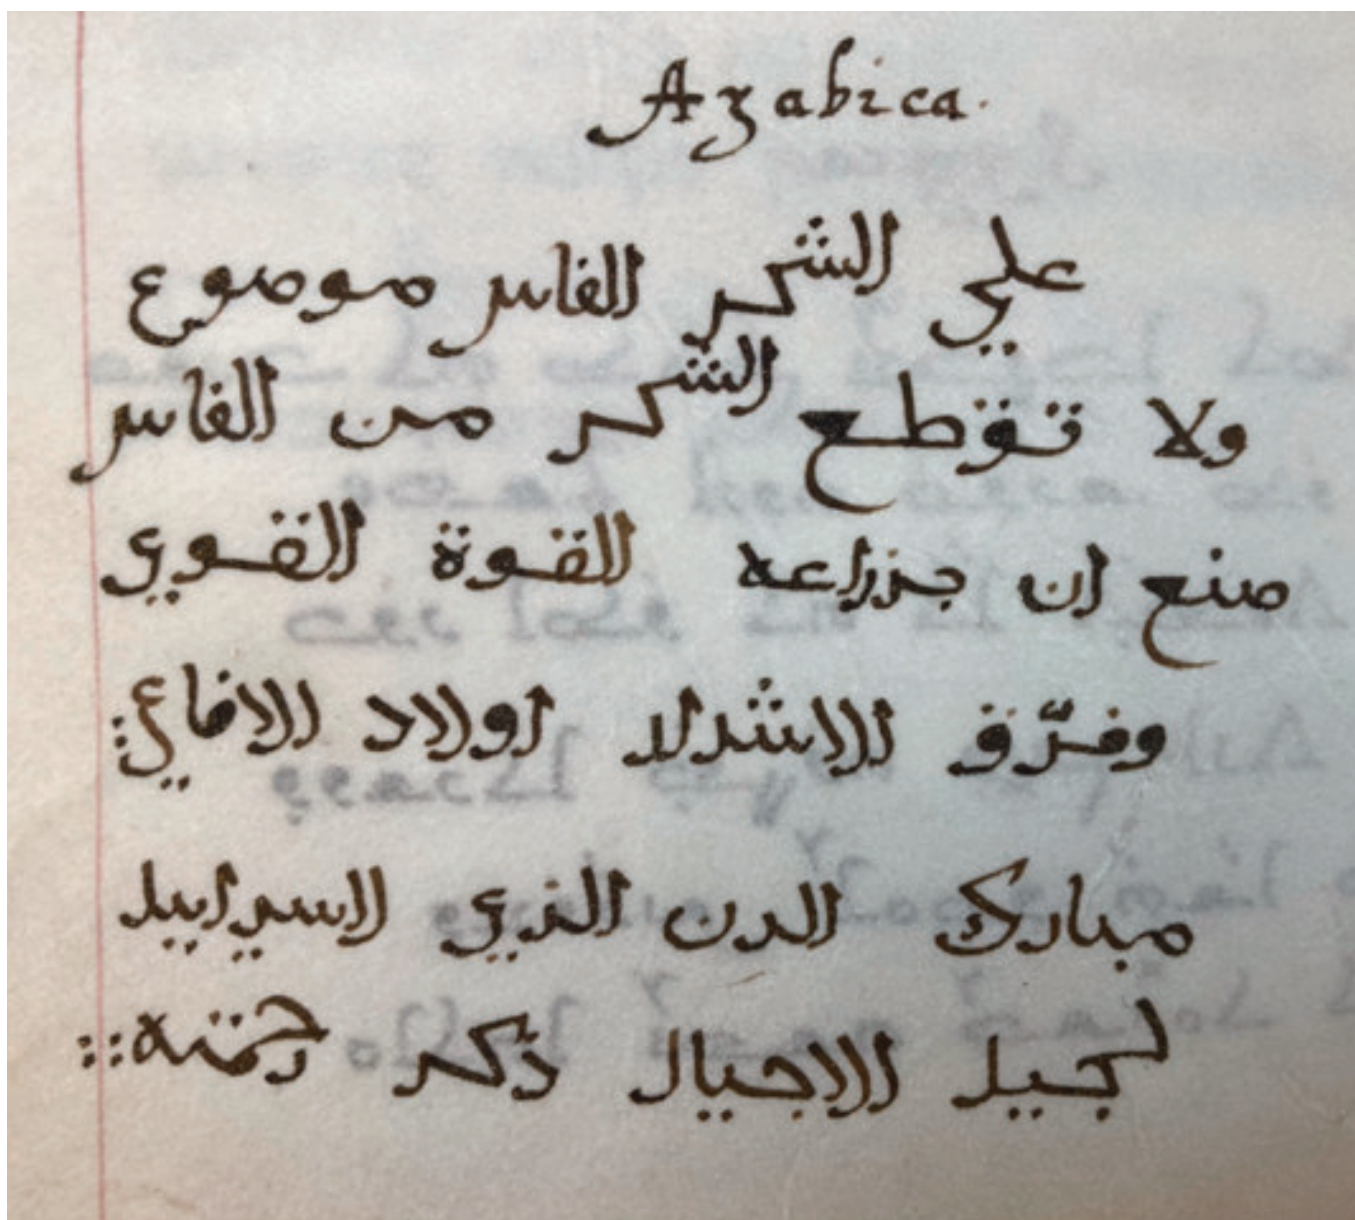 Arabica.
علي الشجر الفاس موضوع
ولا تقطع الشجر من الفاس
صنع ان بزراعه القوة القوي
وفرّق الاشداد اولاد الافاعي:
مبارك الدن الذي لاسراييل
لجيل الاجيال ذكر رحمته::